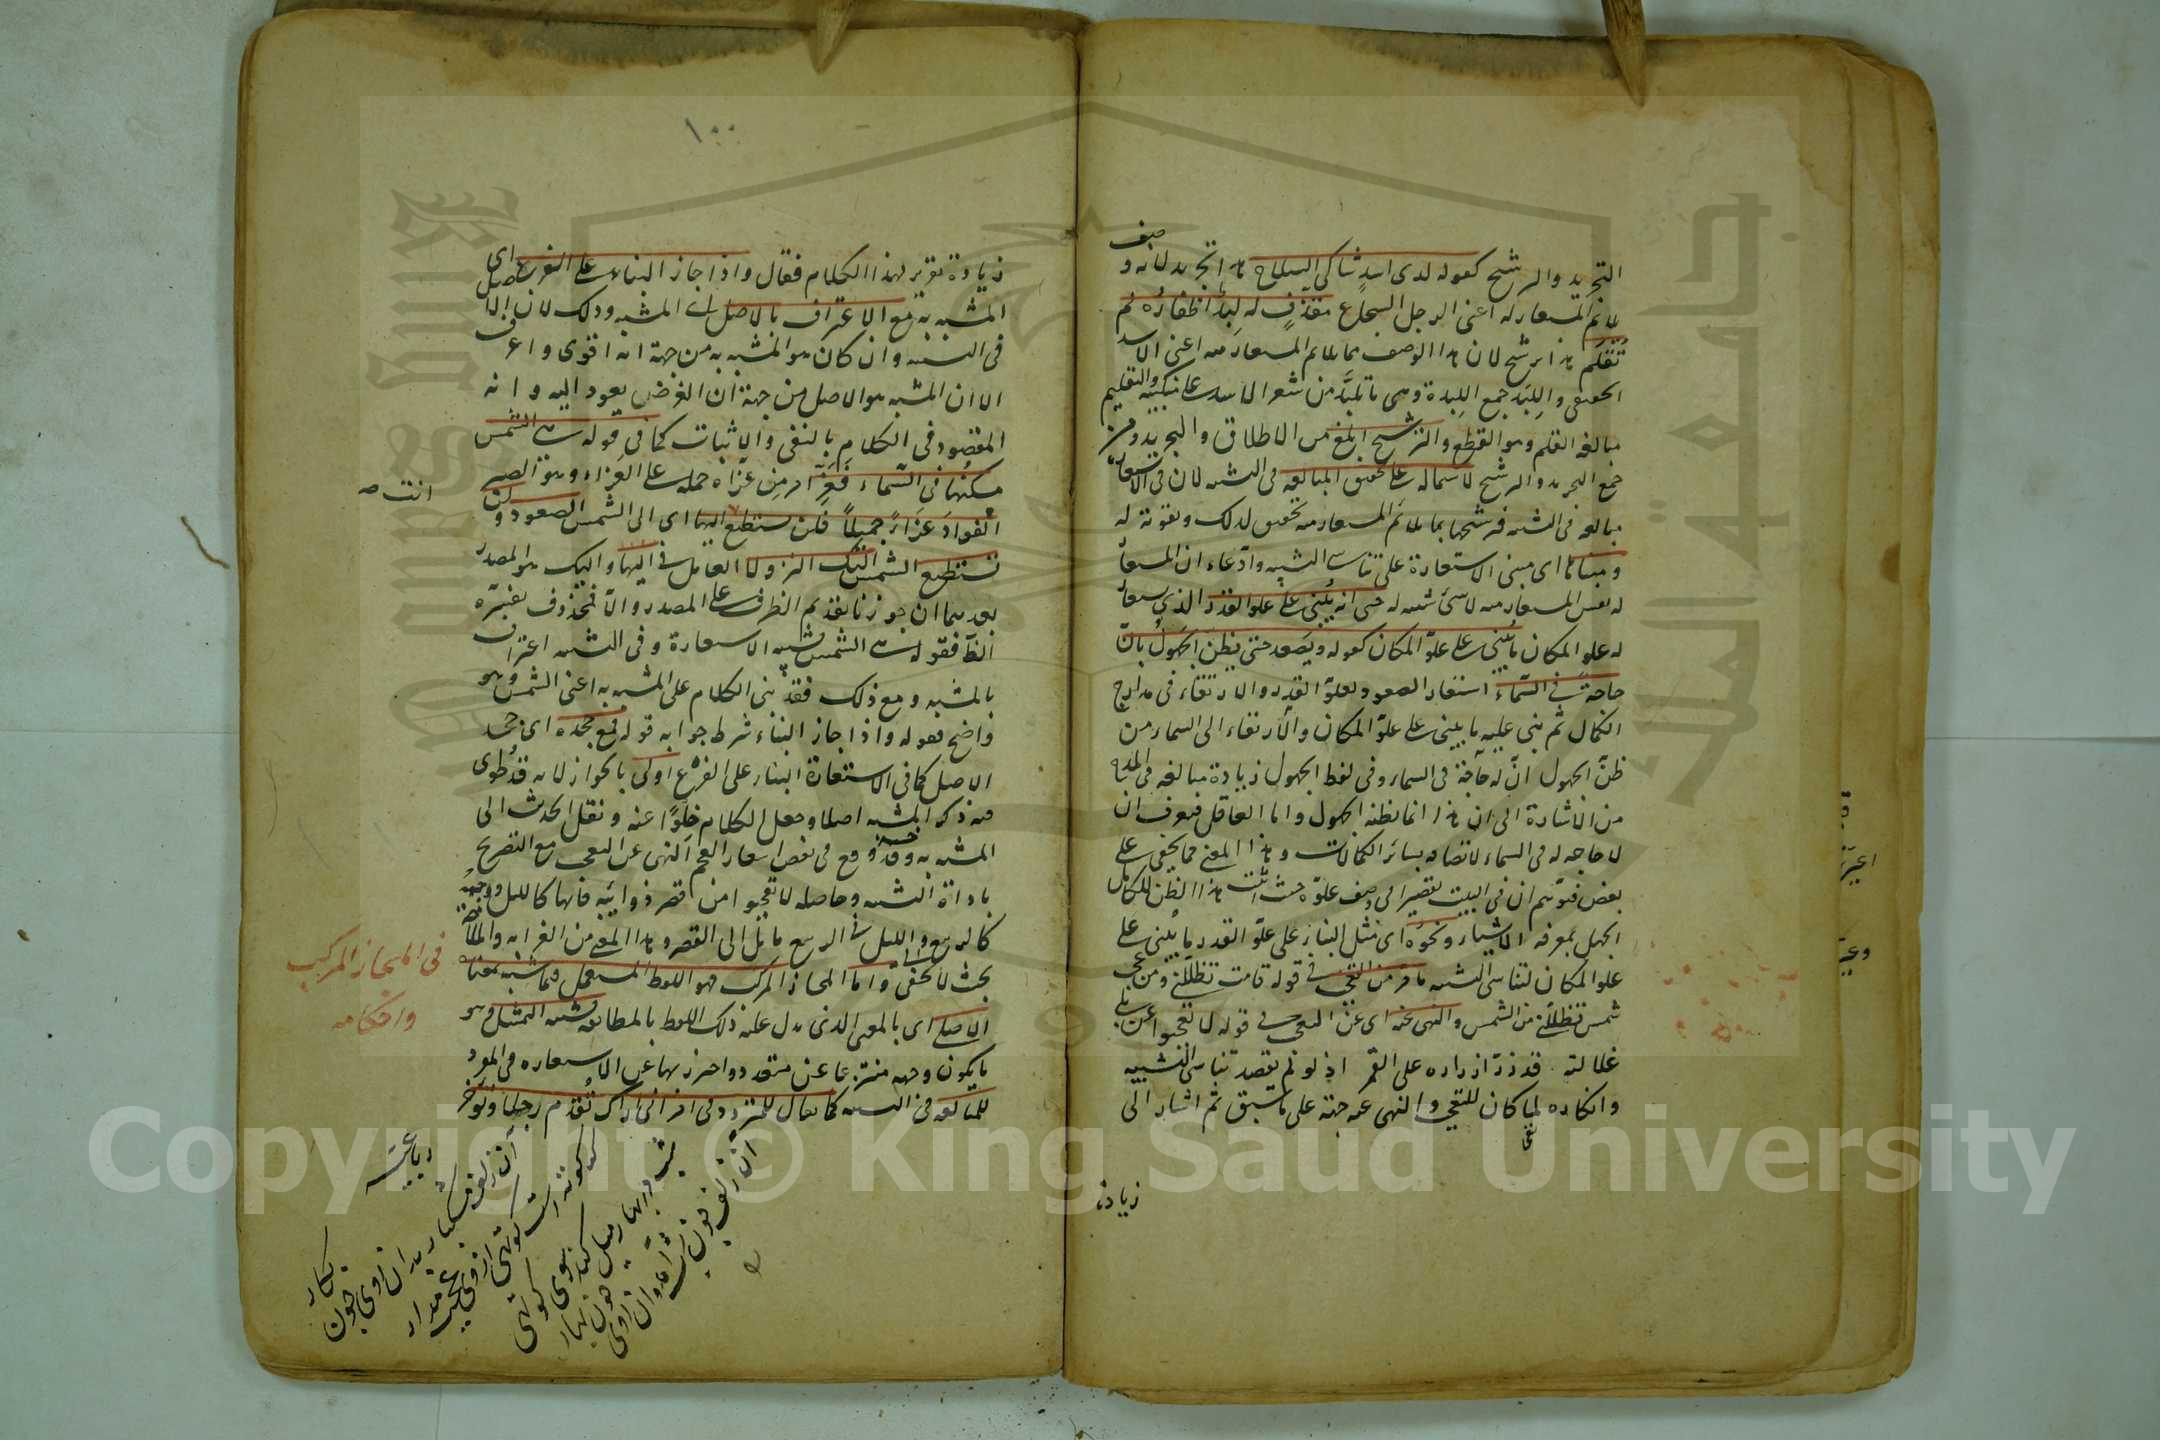 التجريد والترشيح كقوله لدى اسد شاكى السلاح هذا تجريد لانه وصف
يلائم المستعار له اعنى الرجل الشجاع مقذف له لبد اظفاره لم
تقلم هذا ترشيح لان هذا الوصف مما يلائم المستعار منه اعنى الاسد
الحقيقى واللبد جمع اللبدة وهى ما تلبد من شعر الاسد على منكبيه والتقليم
مبالغة القلم وهو القطع والترشيح ابلغ من الاطلاق والتجريد ومن
جمع التجريد والترشيح لاشتماله على تحقيق المبالغة فى التشبيه لان فى الاستعارة
مبالغة فى التشبيه فترشيحها بما يلائم المستعار منه تحقيق لذلك وتقوية له
ومبناها اى مبنى الاستعارة على تناسى التشبيه وادعاء ان المستعار
له نفس المستعار منه لا شئ شبيه به حتى انه يبنى على علو القدر الذى يستعار
له علو المكان ما يبنى على علو المكان كقوله ويصعد حتى يظن الجهول بان
حاجة فى السماء استعار الصعود لعلو القدر والارتقاء فى مدارج
الكمال ثم بنى عليه ما يبنى على علو المكان والارتقاء الى السماء من
ظن الجهول ان له حاجة فى السماء وفى لفظ الجهول زيادة مبالغة فى المدح
من الاشارة الى ان هذا انما يظنه الجهول واما العاقل فيعرف ان
لا حاجة له فى السماء لاتصافه بسائر الكمالات وهذا المعنى مما يخفى على
بعض فتوهم ان فى البيت تقصيرا فى وصف علوه حيث اثبت هذا الظن للكامل
الجهل بمعرفة الاشياء ونحوه اى مثل البناء على علو القدر ما يبنى على
علو المكان لتناسى التشبيه ما مر من التعجب فى قوله قامت تظللنى ومن عجب
شمس تظللنى من الشمس والنهى عنه اى عن التعجب فى قوله لا تعجبوا من بلى
غلالته قد زر ازراره على القمر اذ لو لم يقصد تناسى التشبيه
وانكاره لما كان للتعجب والنهى عنه جهة على ما سبق ثم اشار الى
زيادة
١٠٠
زيادة تقرير لهذا الكلام فقال واذا جاز البناء على الفرع اى
المشبه به مع الاعتراف بالاصل اى المشبه وذلك لان الاصل
فى التشبيه وان كان هو المشبه به من جهة انه اقوى واعرف
الا ان المشبه هو الاصل من جهة ان الغرض يعود اليه وانه
المقصود فى الكلام بالنفى والاثبات كما فى قوله هى الشمس
مسكنها فى السماء فعز امر من عزاه حمله على العزاء وهو الصبر
الفؤاد عزاء جميلا فلن تستطيع اليها اى الى الشمس الصعود ولن
تستطيع الشمس اليك النزولا العامل فى اليها واليك هو المصدر
بعدهما ان جوزنا تقديم الظرف على المصدر والا فمحذوف يفسره
الظاهر فقوله هى الشمس تشبيه لا استعارة وفى التشبيه اعتراف
بالمشبه ومع ذلك فقد بنى الكلام على المشبه به اعنى الشمس وهو
واضح فقوله واذا جاز البناء شرط جوابه قوله فمع جحده اى جحد
الاصل كما فى الاستعارة البناء على الفرع اولى بالجواز لانه قد طوى
فيه ذكر المشبه اصلا وجعل الكلام خلوا عنه ونقل الحديث الى
المشبه به وقد وقع فى بعض اشعار العجم النهى عن التعجب مع التصريح
باداة التشبيه وحاصله لا تعجبوا من قصر ذوائبه فانها كالليل ووجهه
كالربيع والليل فى الربيع مائل الى القصر وهذا المعنى من الغرابة والملاحة
بحيث لا يخفى واما المجاز المركب فهو اللفظ المستعمل فيما شبه بمعناه
الاصلى اى بالمعنى الذى يدل عليه ذلك اللفظ بالمطابقة تشبيه التمثيل وهو
ما يكون وجهه منتزعا من متعدد واحترز بهذا عن الاستعارة فى المفرد
للمبالغة فى التشبيه كما يقال للمتردد فى امر انى اراك تقدم رجلا وتؤخر
انت صه
فى المجاز المركب
واحكامه
رباعيه